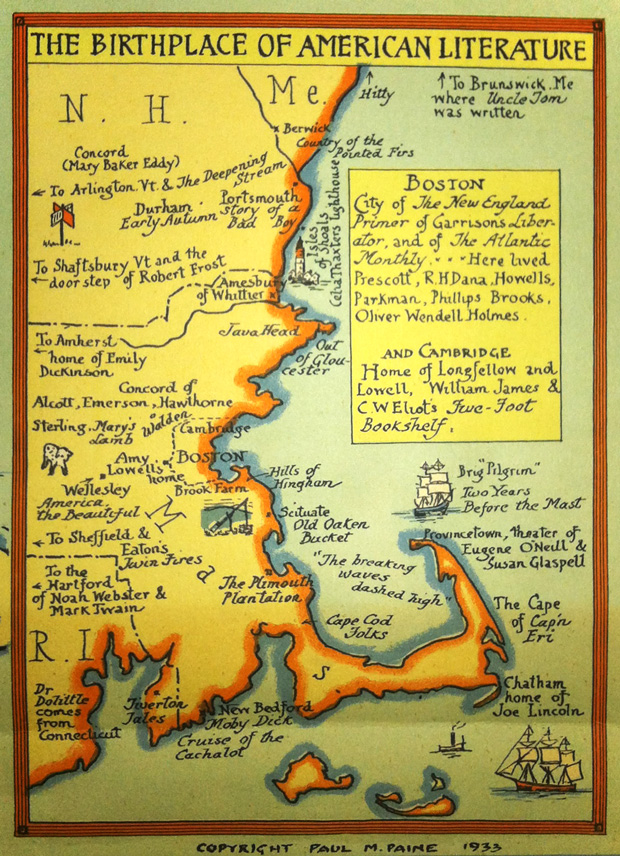 THE BIRTHPLACE OF AMERICAN LITERATURE
N. H.
Me.
Hitty
To Brunswick, Me
where Uncle Tom
was written
Berwick
Country of the
Pointed Firs
Concord
(Mary Baker Eddy)
To Arlington. Vt. & The Deepening
Stream
Durham
Early Autumn
Portsmouth
Story of a
Bad Boy
Isles
of Shoals
Celia Thaxters lighthouse
To Shaftsbury Vt and the
door step of Robert Frost
Amesbury
of Whittier
BOSTON
City of The New England
Primer of Garrisons Liber-
ator, and of The Atlantic
Monthly. Here lived
Prescott, R.H Dana, Howells,
Parkman, Phillips Brooks,
Oliver Wendell Holmes.
AND CAMBRIDGE
Home of Longfellow and
Lowell, William James &
C W Eliot's Five-Foot
Bookshelf.
Java Head
Out
of Glou-
cester
To Amherst
home of Emily
Dickinson
Concord of
Alcott, Emerson, Hawthorne
Walden
Sterling, Mary's
Lamb
Cambridge
BOSTON
Amy
Lowell's
home
Brook Farm
Wellesley
America
the Beautiful
Hills of
Hingham
Scituate
Old Oaken
Bucket
Brig "Pilgrim"
Two Years
Before the Mast
To Sheffield &
Eatons
Twin Fires
To the
Hartford
of Noah Webster &
Mark Twain
M a s s
The Plimouth
Plantation
"The breaking
waves
dashed high"
Provincetown, theater of
Eugene O'Neill &
Susan Glaspell
Cape Cod
Folks
The Cape
of Cap'n
Eri
Chatham
home of
Joe Lincoln
R. I.
Dr
Dolittle
comes
from
Connecticut
Tiverton
Tales
New Bedford
Moby Dick
Cruise of the
Cachalot
COPYRIGHT PAUL M. PAINE 1933